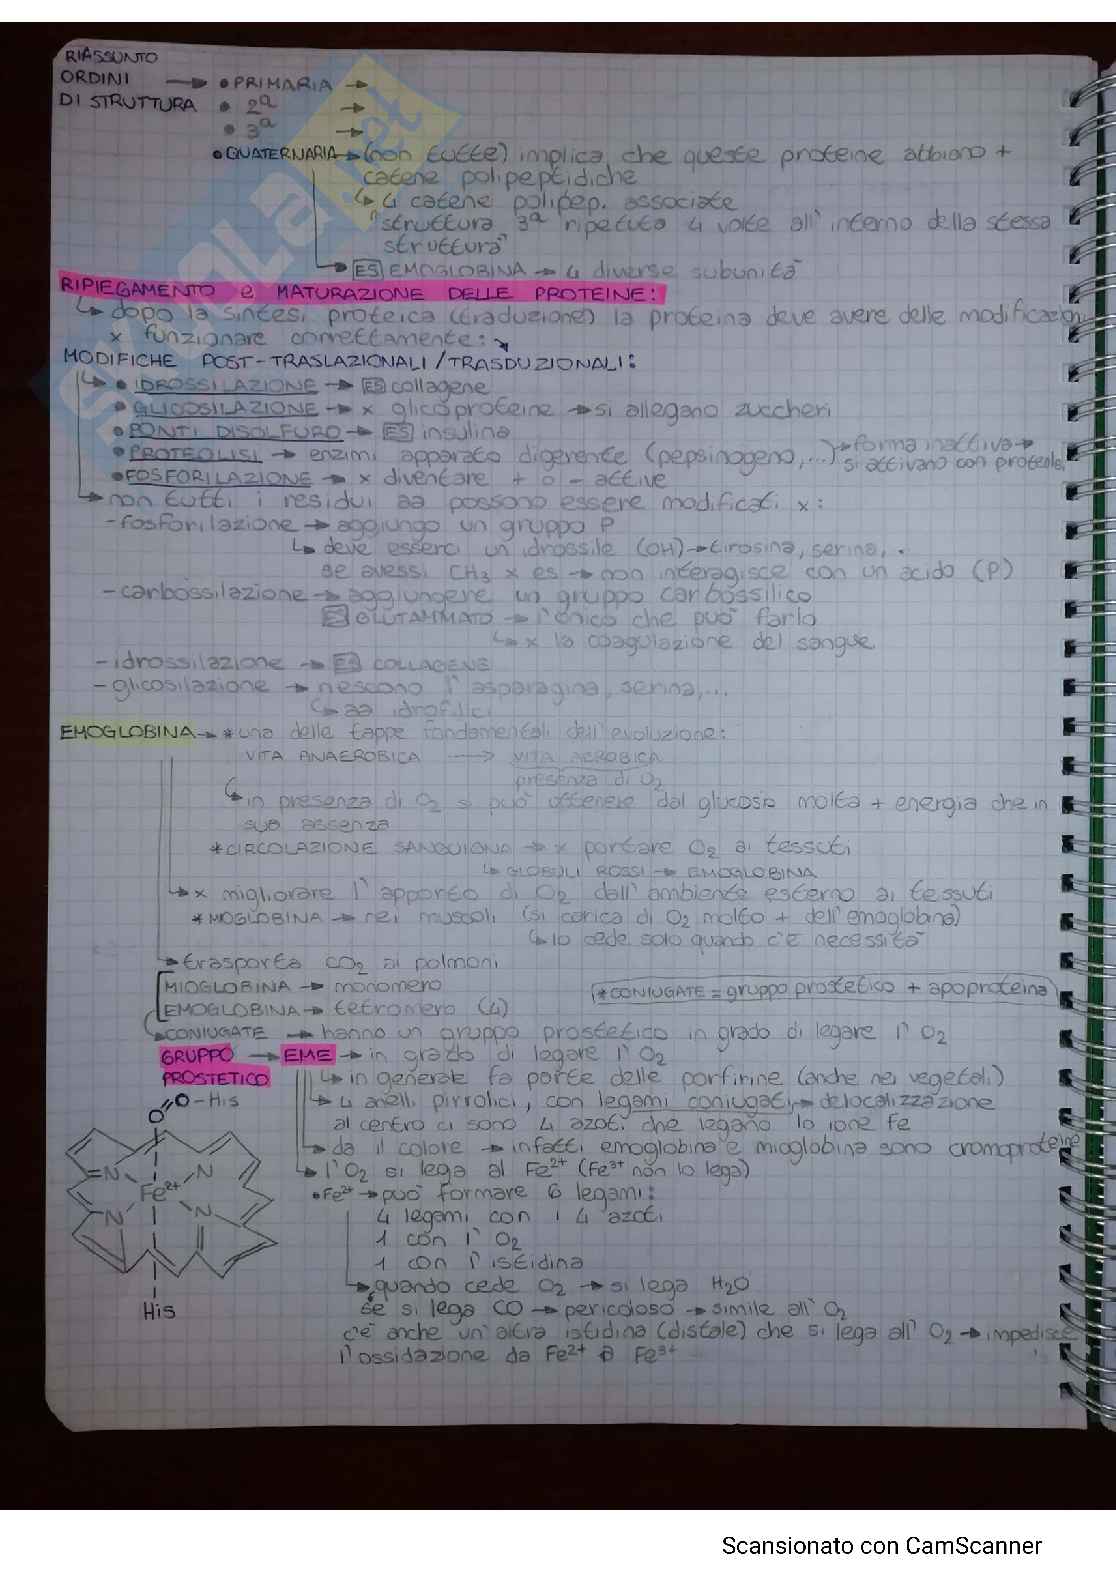 RIASSUNTO
ORDINI → • PRIMARIA →
DI STRUTTURA • 2ª →
• 3ª →
• QUATERNARIA → (non tutte) implica che queste proteine abbiano +
catene polipeptidiche
↳ 4 catene polipep. associate
"struttura 3ª ripetuta 4 volte all'interno della stessa
struttura"
→ ES EMOGLOBINA → 4 diverse subunità
RIPIEGAMENTO e MATURAZIONE DELLE PROTEINE:
↳ dopo la sintesi proteica (traduzione) la proteina deve avere delle modificazioni
x funzionare correttamente: ↘
MODIFICHE POST-TRASLAZIONALI/TRASDUZIONALI:
↳ • IDROSSILAZIONE → ES collagene
• GLICOSILAZIONE → x glicoproteine → si allegano zuccheri
• PONTI DISOLFURO → ES insulina
• PROTEOLISI → enzimi apparato digerente (pepsinogeno, ...) → forma inattiva →
si attivano con proteole.
• FOSFORILAZIONE → x diventare + o - attive
→ non tutti i residui aa possono essere modificati x:
- fosforilazione → aggiungo un gruppo P
↳ deve esserci un idrossile (OH) → tirosina, serina, .
se avessi CH3 x es → non interagisce con un acido (P)
- carbossilazione → aggiungere un gruppo carbossilico
ES GLUTAMMATO → l'unico che può farlo
↳ x la coagulazione del sangue
- idrossilazione → ES COLLAGENE
- glicosilazione → riescono l'asparagina, serina, ...
↳ aa idrofilici
EMOGLOBINA → * una delle tappe fondamentali dell'evoluzione:
VITA ANAEROBICA → VITA AEROBICA
presenza di O2
↳ in presenza di O2 si può ottenere dal glucosio molta + energia che in
sua assenza
* CIRCOLAZIONE SANGUIGNA → x portare O2 ai tessuti
↳ GLOBULI ROSSI → EMOGLOBINA
→ x migliorare l'apporto di O2 dall'ambiente esterno ai tessuti
* MOGLOBINA → nei muscoli (si carica di O2 molto + dell'emoglobina)
↳ lo cede solo quando c'è necessità
→ trasporta CO2 ai polmoni
MIOGLOBINA → monomero
* CONIUGATE = gruppo prostetico + apoproteina
EMOGLOBINA → tetramero (4)
→ CONIUGATE → hanno un gruppo prostetico in grado di legare l'O2
GRUPPO → EME → in grado di legare l'O2
PROSTETICO ↳ in generale fa parte delle porfirine (anche nei vegetali)
↳ 4 anelli pirrolici, con legami coniugati → delocalizzazione
al centro ci sono 4 azoti che legano lo ione Fe
→ da il colore → infatti emoglobina e mioglobina sono cromoproteine
→ l'O2 si lega al Fe2+ (Fe3+ non lo lega)
• Fe2+ → può formare 6 legami:
4 legami con i 4 azoti
1 con l'O2
1 con l'istidina
→ quando cede O2 → si lega H2O
se si lega CO → pericoloso → simile all'O2
c'è anche un'altra istidina (distale) che si lega all'O2 → impedisce
l'ossidazione da Fe2+ a Fe3+
O=O-His
N N
Fe2+
N N
His
Scansionato con CamScanner